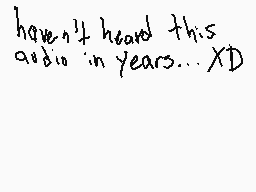 haven't heard this
audio in years... XD